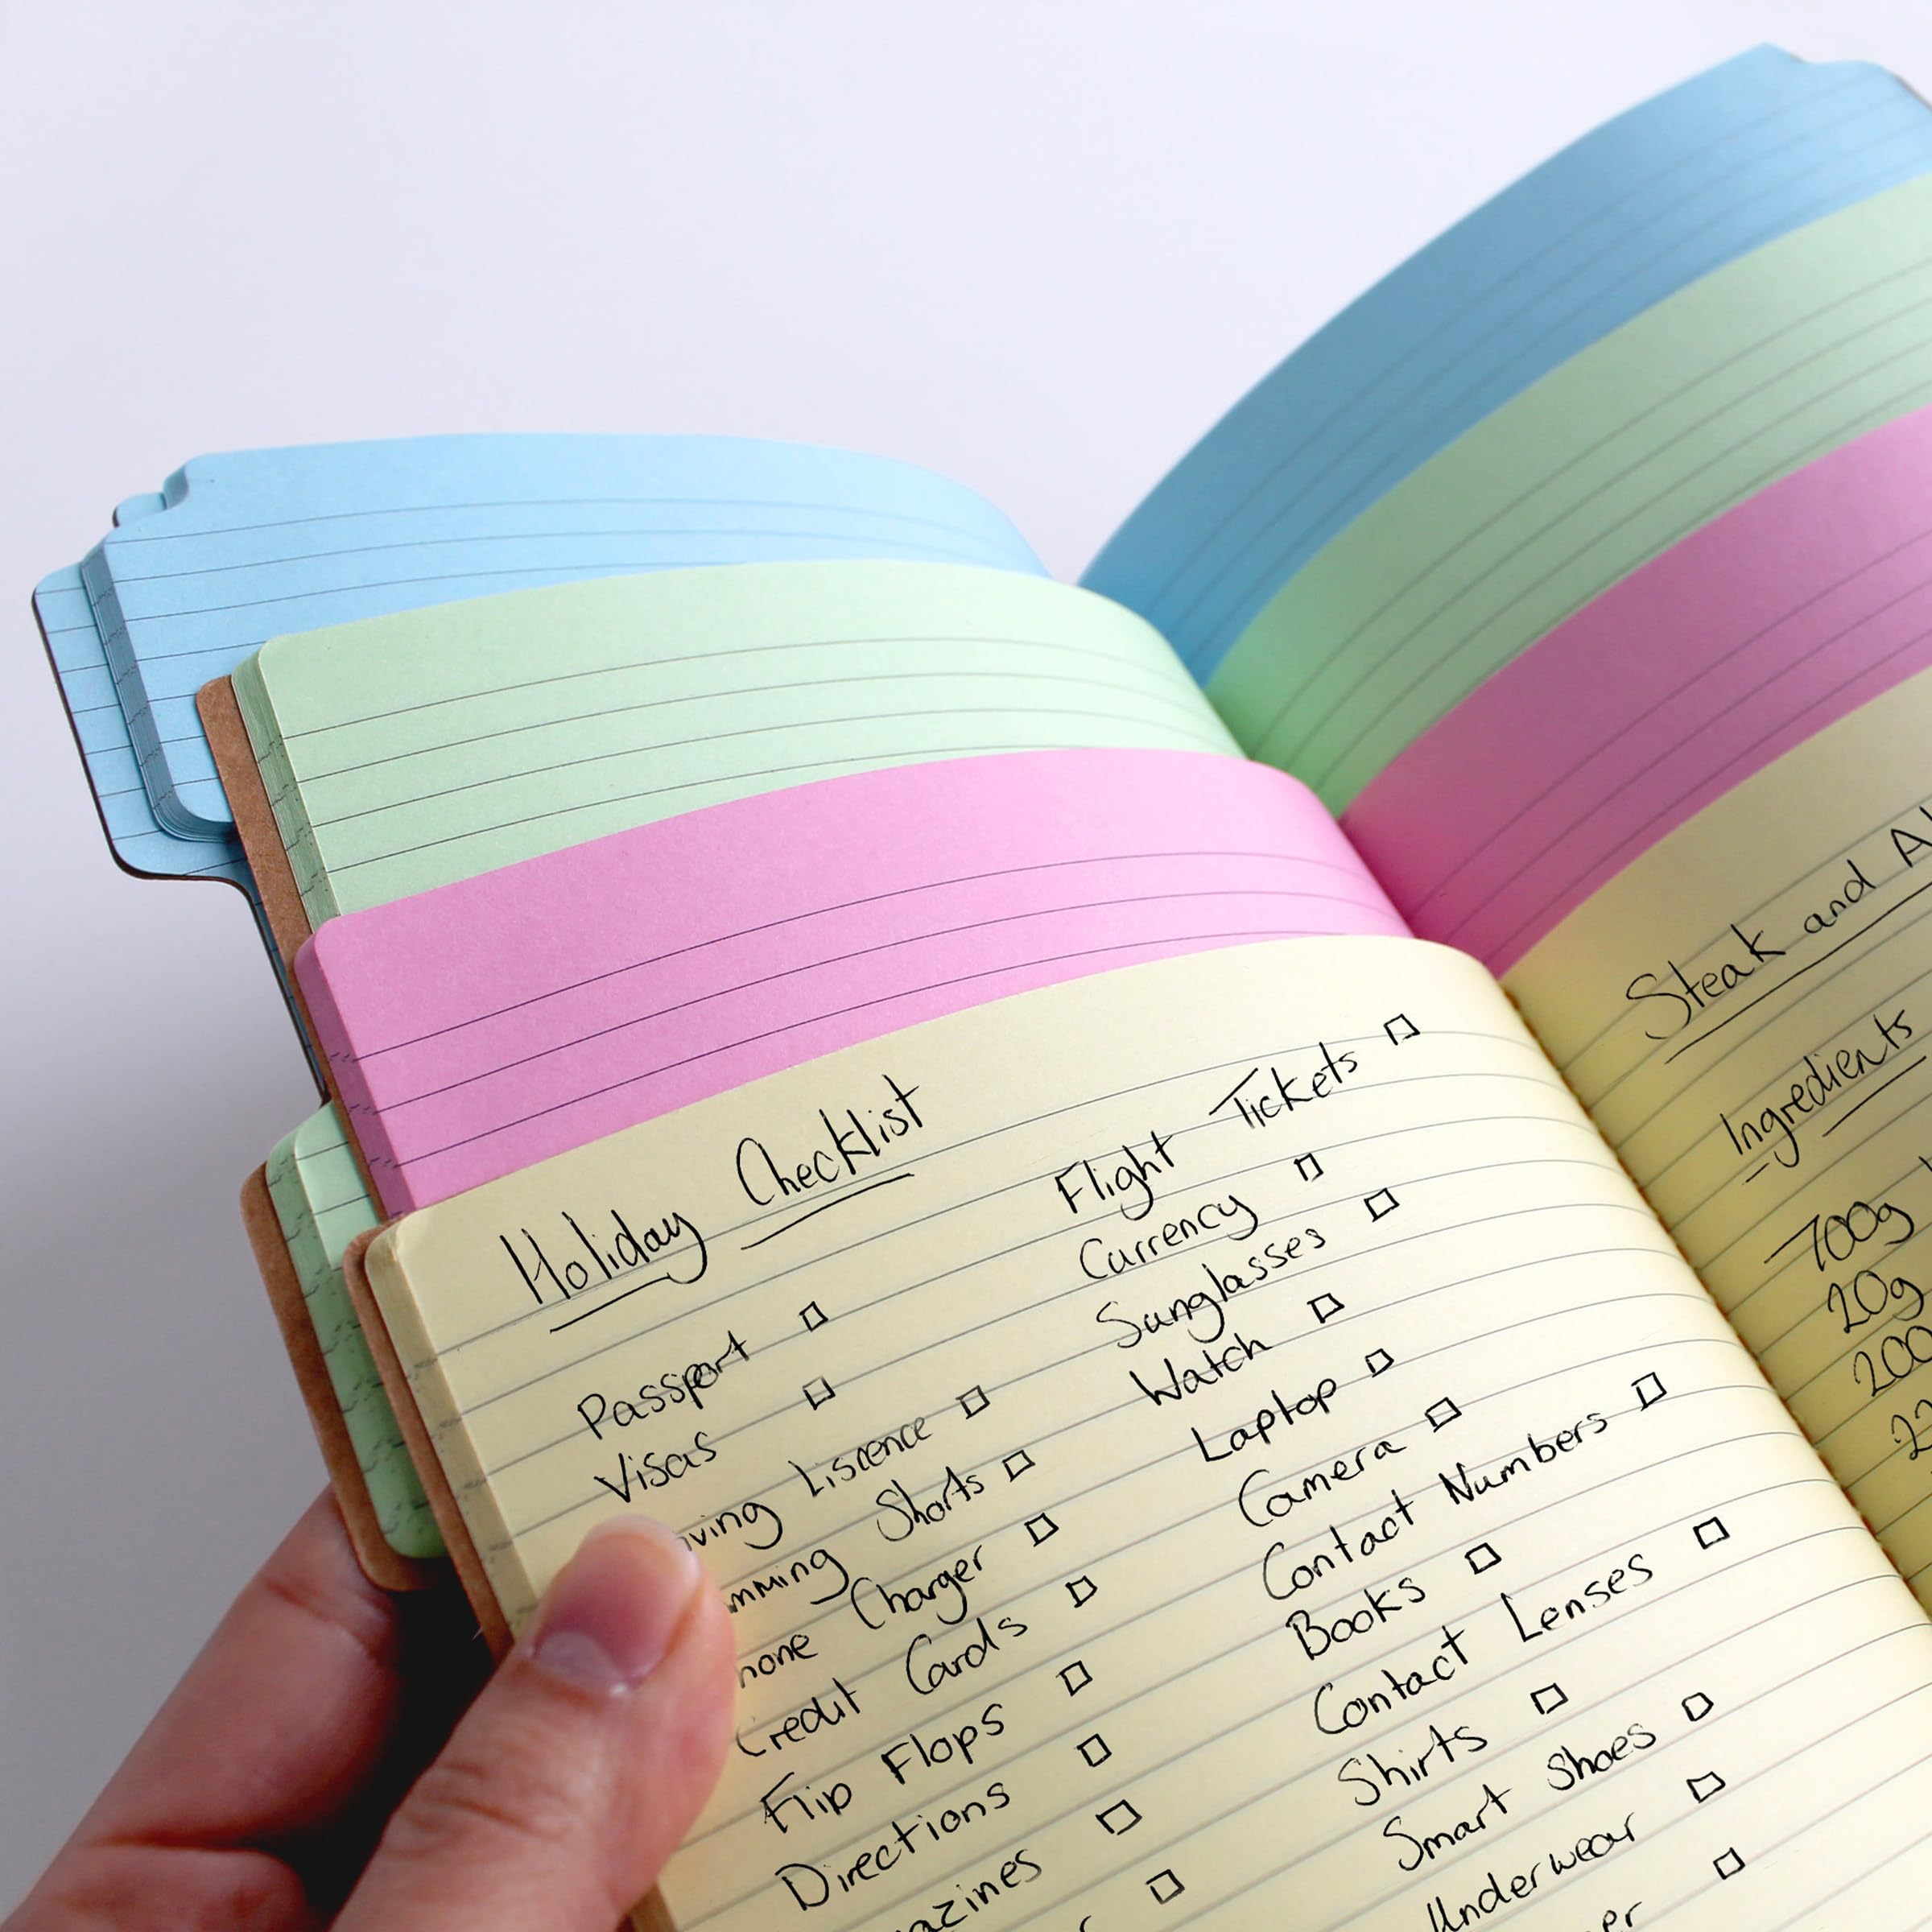 Holiday Checklist
Passport
Visas
iving Liscence
mming Shorts
hone Charger
Credit Cards
Flip Flops
Directions
azines
Flight Tickets
Currency
Sunglasses
Watch
Laptop
Camera
Contact Numbers
Books
Contact Lenses
Shirts
Smart Shoes
Underwear
er
Steak and A
Ingredients
700g
20g
200